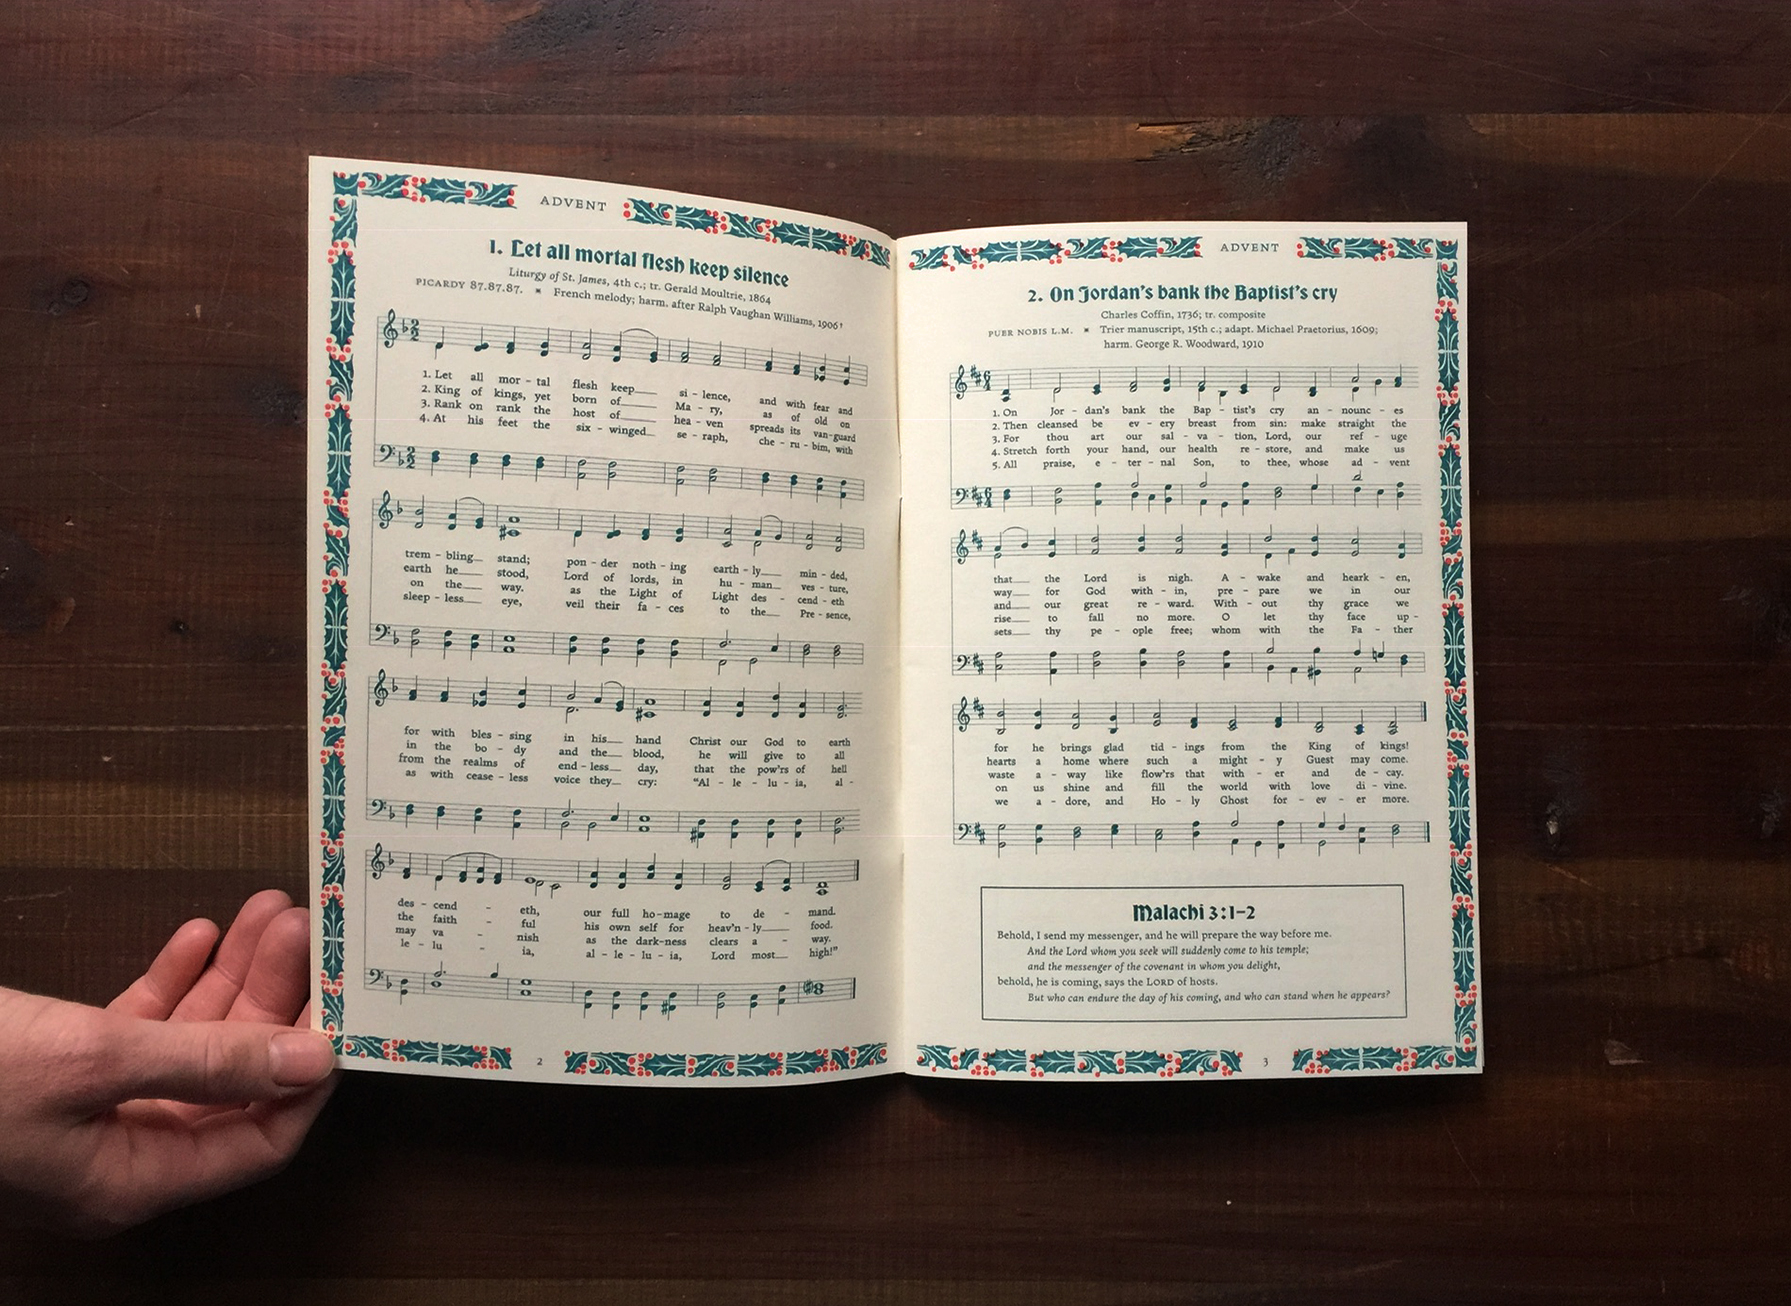 ADVENT
1. Let all mortal flesh keep silence
Liturgy of St. James, 4th c.; tr. Gerald Moultrie, 1864
PICARDY 87.87.87. * French melody; harm. after Ralph Vaughan Williams, 1906†
1. Let all mor - tal flesh keep___ si - lence, and with fear and
2. King of kings, yet born of___ Ma - ry, as of old on
3. Rank on rank the host of___ hea - ven spreads its van - guard
4. At his feet the six - winged___ se - raph, che - ru - bim, with
trem - bling___ stand; pon - der noth - ing earth - ly___ min - ded,
earth he___ stood, Lord of lords, in hu - man___ ves - ture,
on the___ way. as the Light of Light des - cend - eth
sleep - less___ eye, veil their fa - ces to the___ Pre - sence,
for with bles - sing in his___ hand Christ our God to earth
in the bo - dy and the___ blood, he will give to all
from the realms of end - less___ day, that the pow'rs of hell
as with cease - less voice they___ cry: "Al - le - lu - ia, al -
des - cend - eth, our full ho - mage to de - mand.
the faith - ful his own self for heav'n - ly___ food.
may va - nish as the dark - ness clears a - way.
le - lu - ia, al - le - lu - ia, Lord most___ high!"
2
ADVENT
2. On Jordan's bank the Baptist's cry
Charles Coffin, 1736; tr. composite
PUER NOBIS L.M. * Trier manuscript, 15th c.; adapt. Michael Praetorius, 1609;
harm. George R. Woodward, 1910
1. On Jor - dan's bank the Bap - tist's cry an - nounc - es
2. Then cleansed be ev - ery breast from sin: make straight the
3. For thou art our sal - va - tion, Lord, our ref - uge
4. Stretch forth your hand, our health re - store, and make us
5. All praise, e - ter - nal Son, to thee, whose ad - vent
that___ the Lord is nigh. A - wake and heark - en,
way___ for God with - in, pre - pare we in our
and___ our great re - ward. With - out thy grace we
rise___ to fall no more. O let thy face up -
sets___ thy pe - ople free; whom with the Fa - ther
for he brings glad tid - ings from the King of kings!
hearts a home where such a might - y Guest may come.
waste a - way like flow'rs that with - er and de - cay.
on us shine and fill the world with love di - vine.
we a - dore, and Ho - ly Ghost for - ev - er more.
Malachi 3:1–2
Behold, I send my messenger, and he will prepare the way before me.
And the Lord whom you seek will suddenly come to his temple;
and the messenger of the covenant in whom you delight,
behold, he is coming, says the LORD of hosts.
But who can endure the day of his coming, and who can stand when he appears?
3